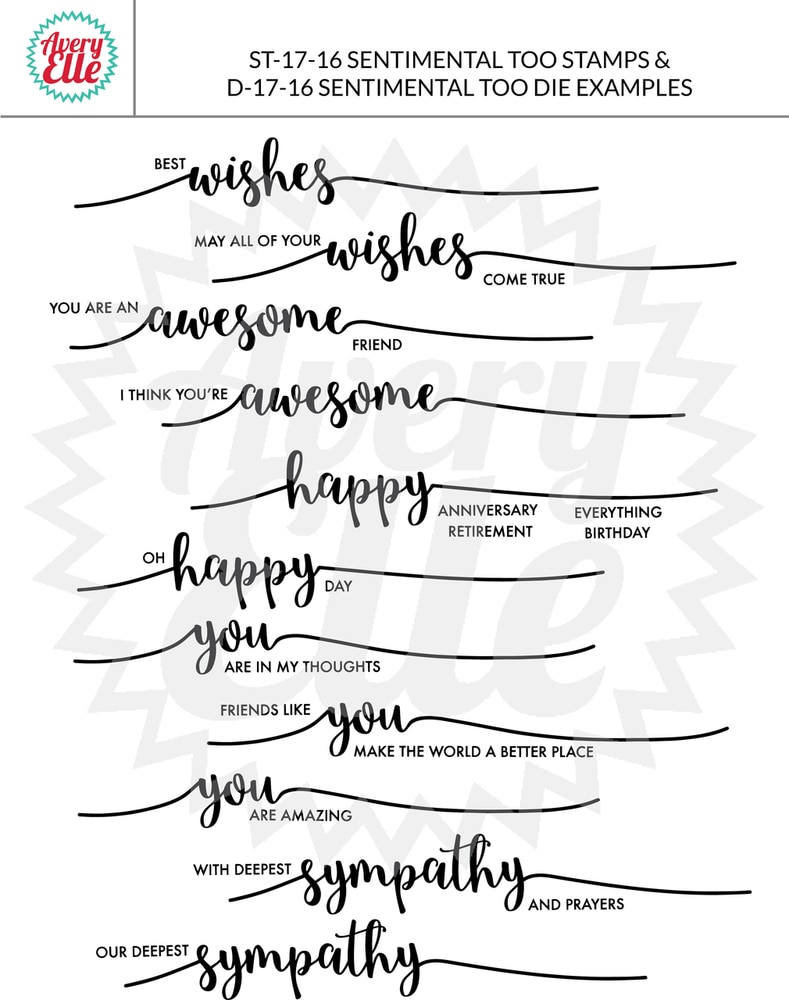 Avery
Elle
ST-17-16 SENTIMENTAL TOO STAMPS &
D-17-16 SENTIMENTAL TOO DIE EXAMPLES
BEST wishes
MAY ALL OF YOUR wishes COME TRUE
YOU ARE AN awesome FRIEND
I THINK YOU'RE awesome
happy
ANNIVERSARY EVERYTHING
RETIREMENT BIRTHDAY
OH happy DAY
you ARE IN MY THOUGHTS
FRIENDS LIKE you MAKE THE WORLD A BETTER PLACE
you ARE AMAZING
WITH DEEPEST sympathy AND PRAYERS
OUR DEEPEST sympathy
Avery
Elle